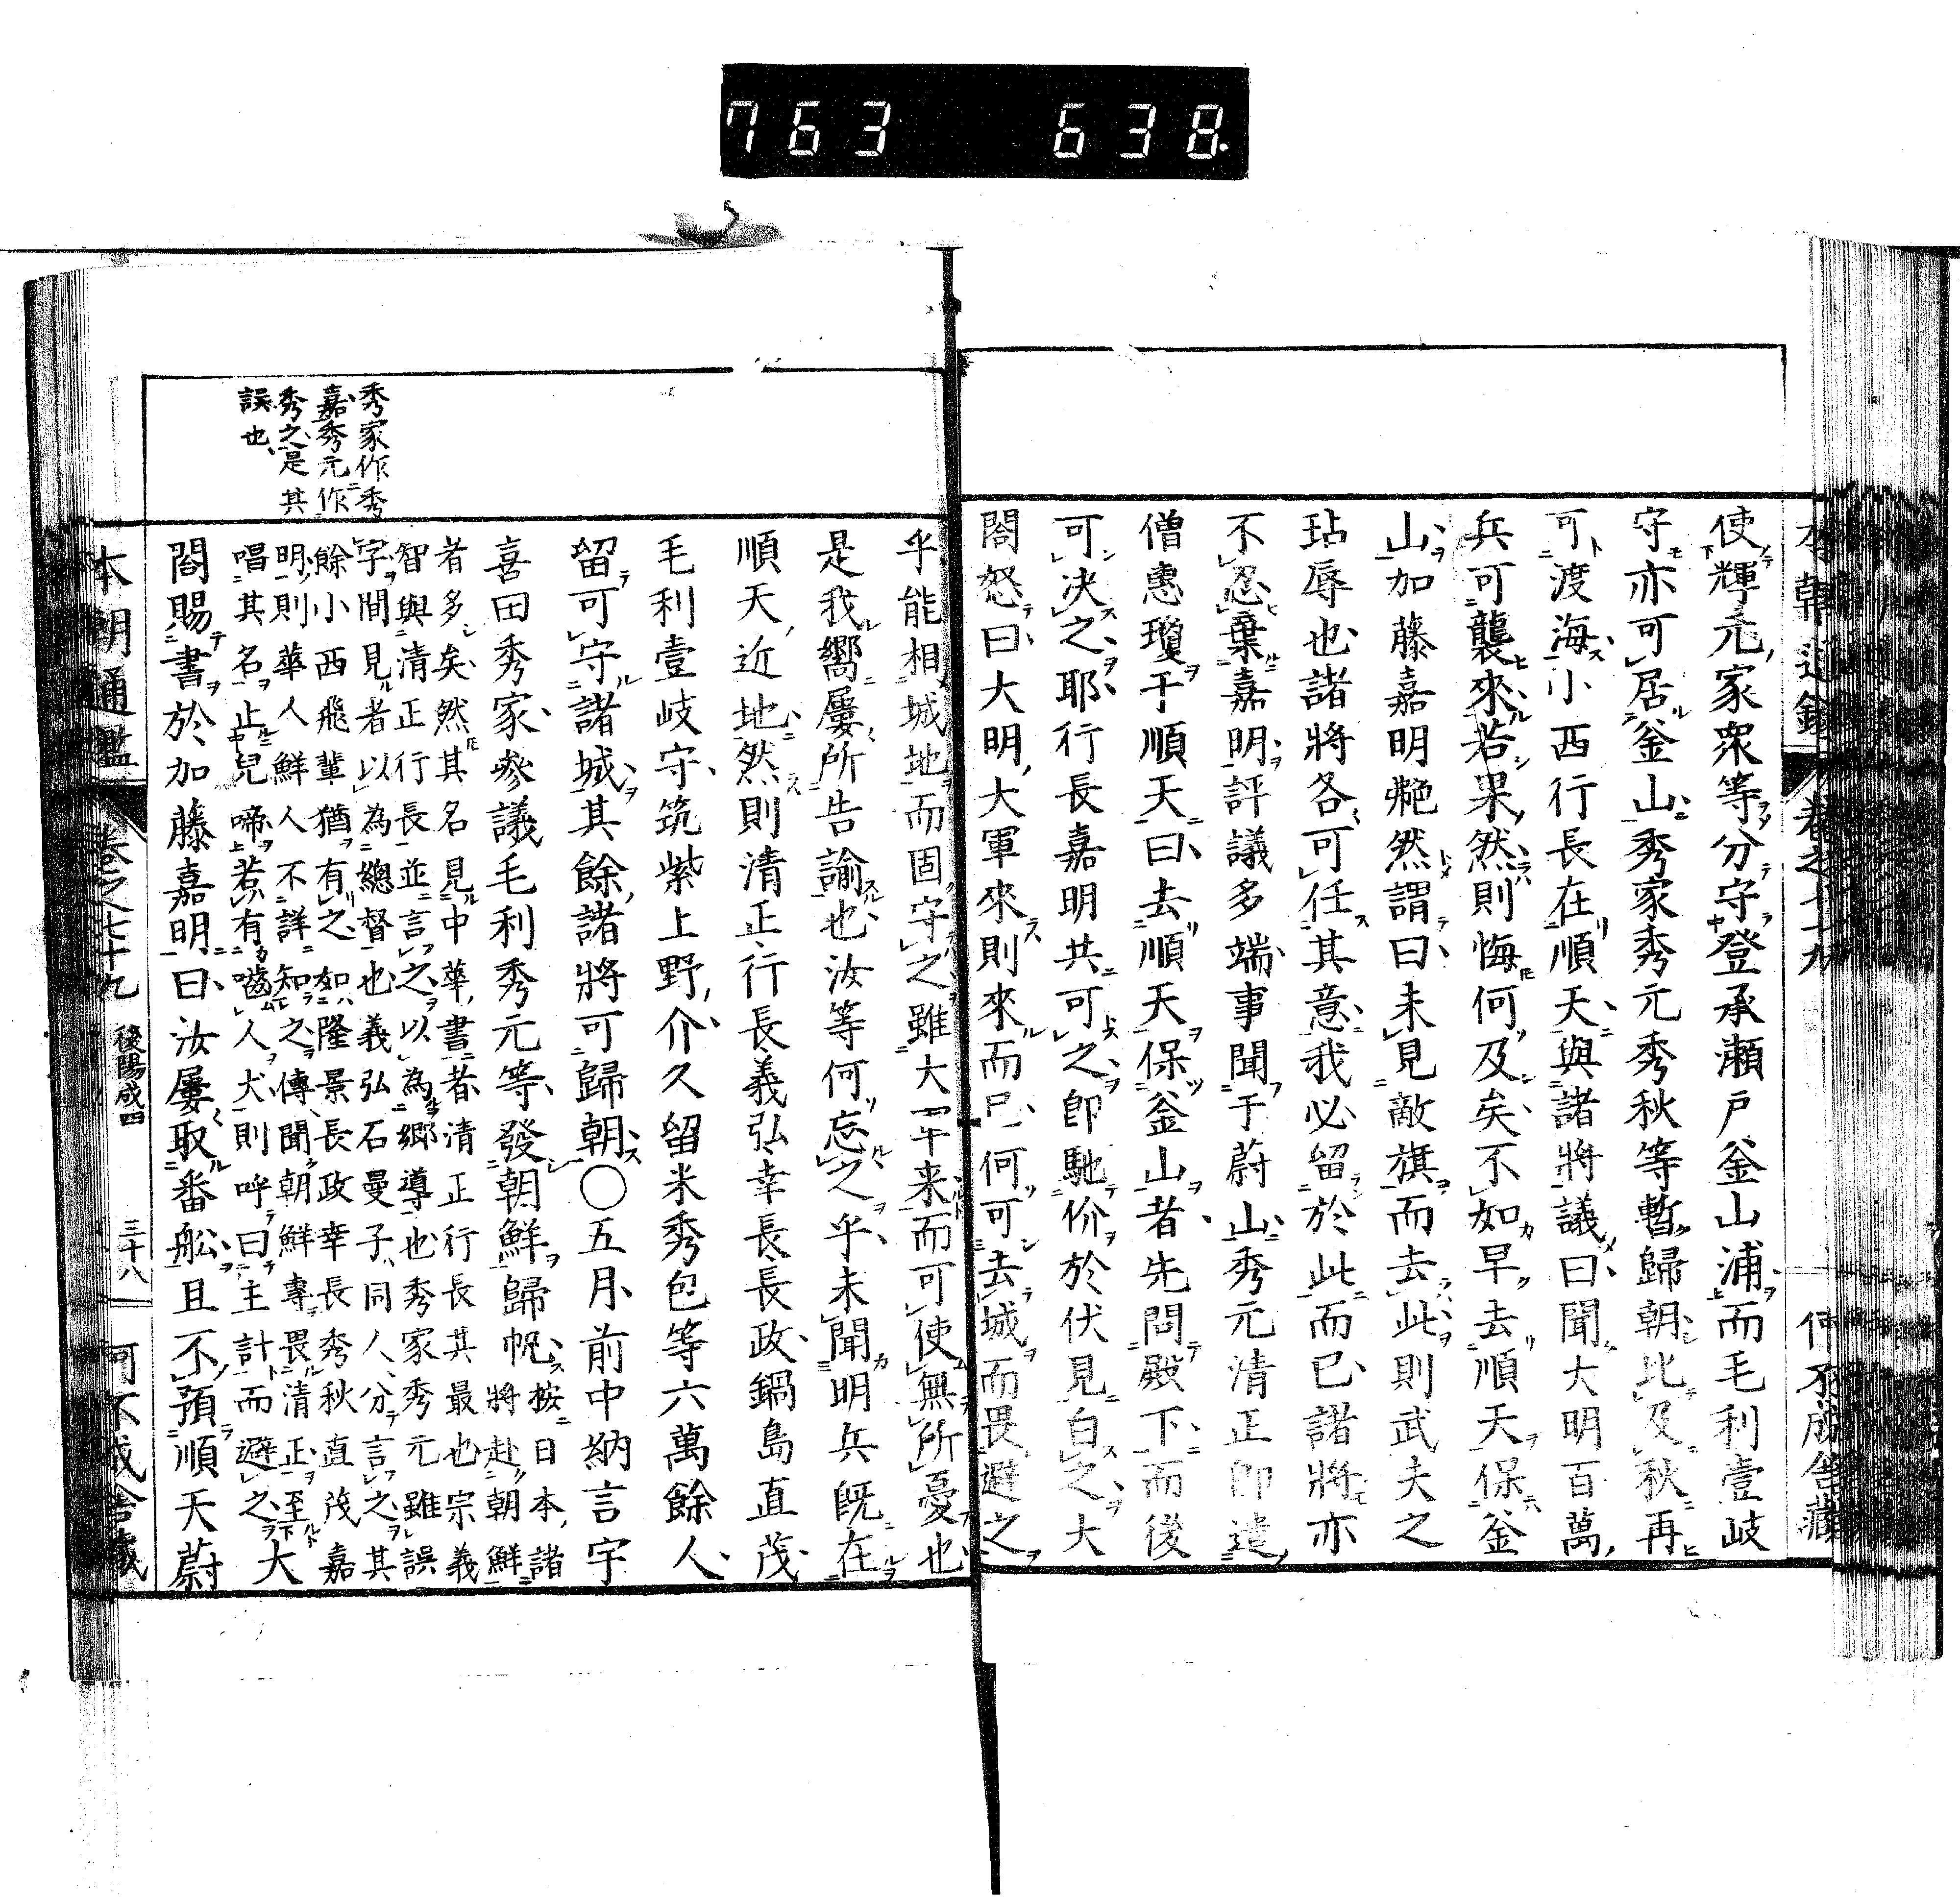 763 638
本朝通鑑 卷之七十九 何不成舎藏
使輝元家衆等分守登承瀬戸釜山浦而毛利壹岐
守亦可居釜山秀家秀元秀秋等暫歸朝比及秋再
可渡海小西行長在順天與諸將議曰聞大明百萬
兵可襲來若果然則悔何及矣不如早去順天保釜
山加藤嘉明艴然謂曰未見敵旗而去此則武夫之
玷辱也諸將各可任其意我必留於此而已諸將亦
不忍棄嘉明評議多端事聞于蔚山秀元清正即遣
僧惠瓊于順天曰去順天保釜山者先問殿下而後
可决之耶行長嘉明共可之即馳价於伏見白之大
閤怒曰大明大軍來則來而已何可去城而畏避之
乎能相城地而固守之雖大軍来而可使無所憂也
是我嚮屢所告諭也汝等何忘之乎未聞明兵既在
順天近地然則清正行長義弘幸長長政鍋島直茂
毛利壹岐守筑紫上野介久留米秀包等六萬餘人
留可守諸城其餘諸將可歸朝○五月前中納言宇
喜田秀家參議毛利秀元等發朝鮮歸帆
按日本諸
將赴朝鮮
者多矣然其名見中華書者清正行長其最也宗義
智與清正行長並言之以為郷導也秀家秀元雖誤
字間見者以為總督也義弘石曼子同人分言之其
餘小西飛輩猶有之如隆景長政幸長秀秋直茂嘉
明則華人鮮人不詳知之傳聞朝鮮專畏清正至
唱其名止兒啼若有嚙人犬則呼曰主計而避之大
閤賜書於加藤嘉明曰汝屢取番舩且不預順天蔚
秀家作秀
嘉秀元作
秀之是其
誤也
本朝通鑑 卷之七十九 後陽成四 三十八 何不成舎藏